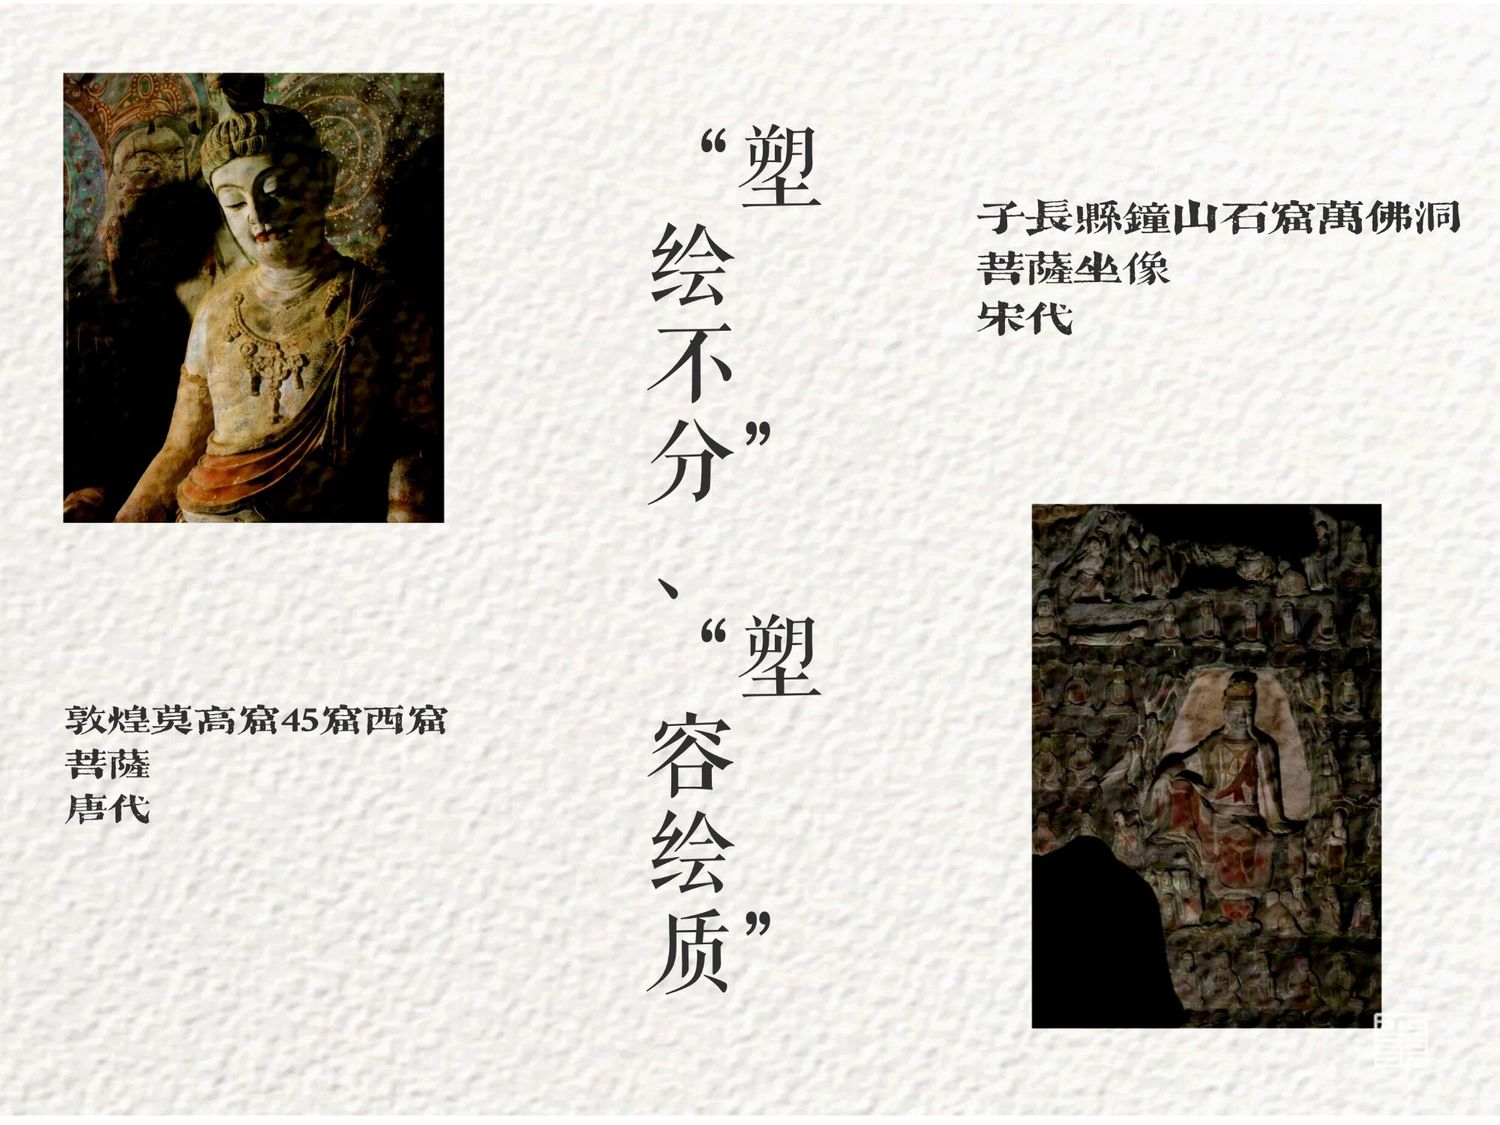 “塑绘不分”、“塑容绘质”
子長縣鐘山石窟萬佛洞
菩薩坐像
宋代
敦煌莫高窟45窟西窟
菩薩
唐代